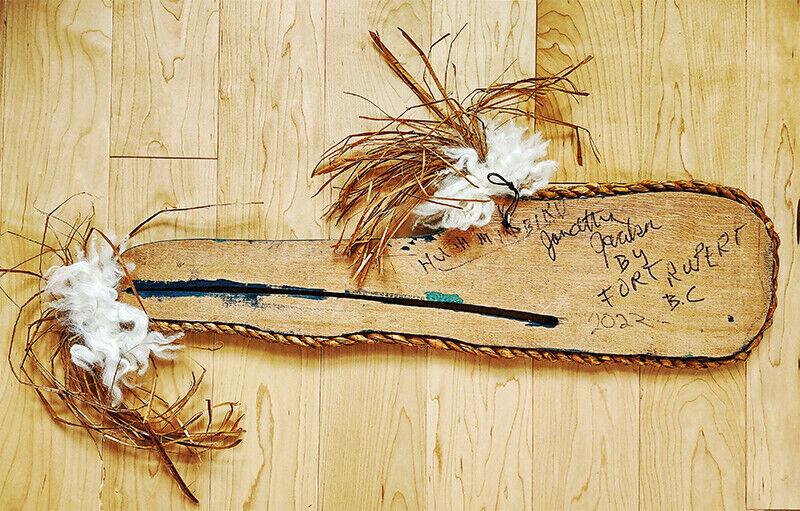 HUMMINGBIRD
Jonathan
Jacobson
BY
FORT RUPERT
B.C
2022